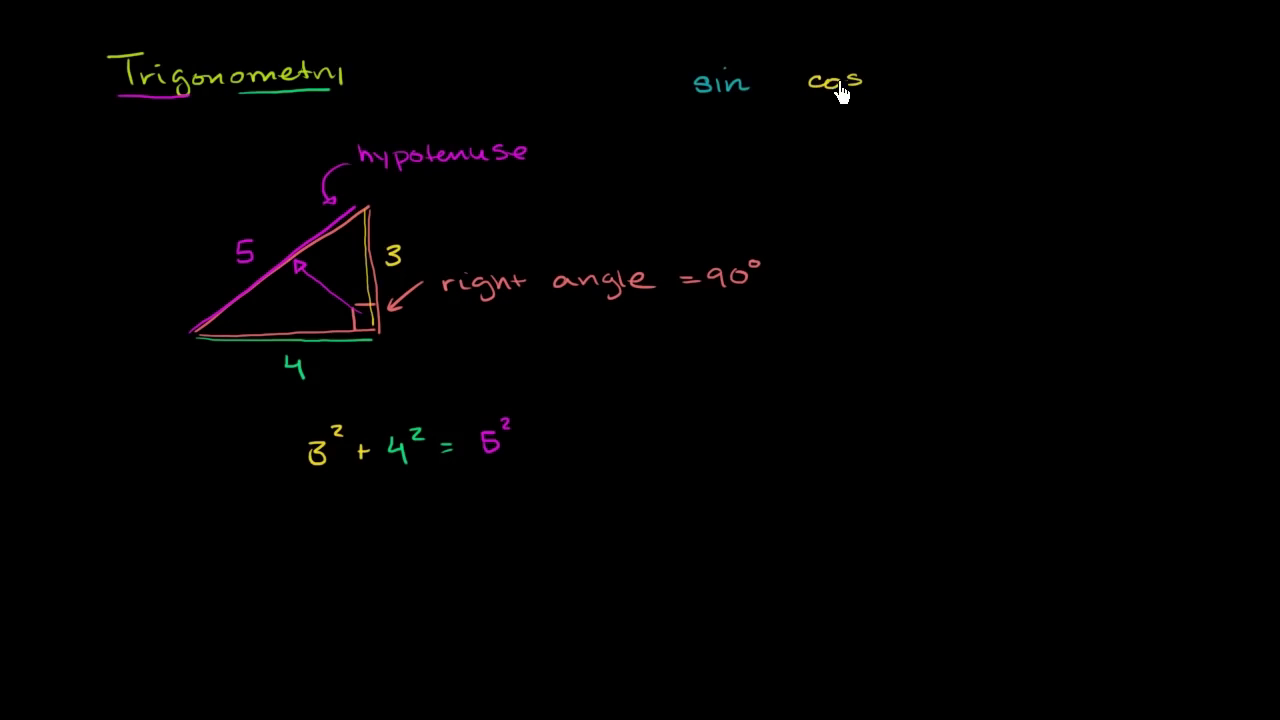 Trigonometry
sin cos
hypotenuse
5
3
right angle = 90°
4
3² + 4² = 5²